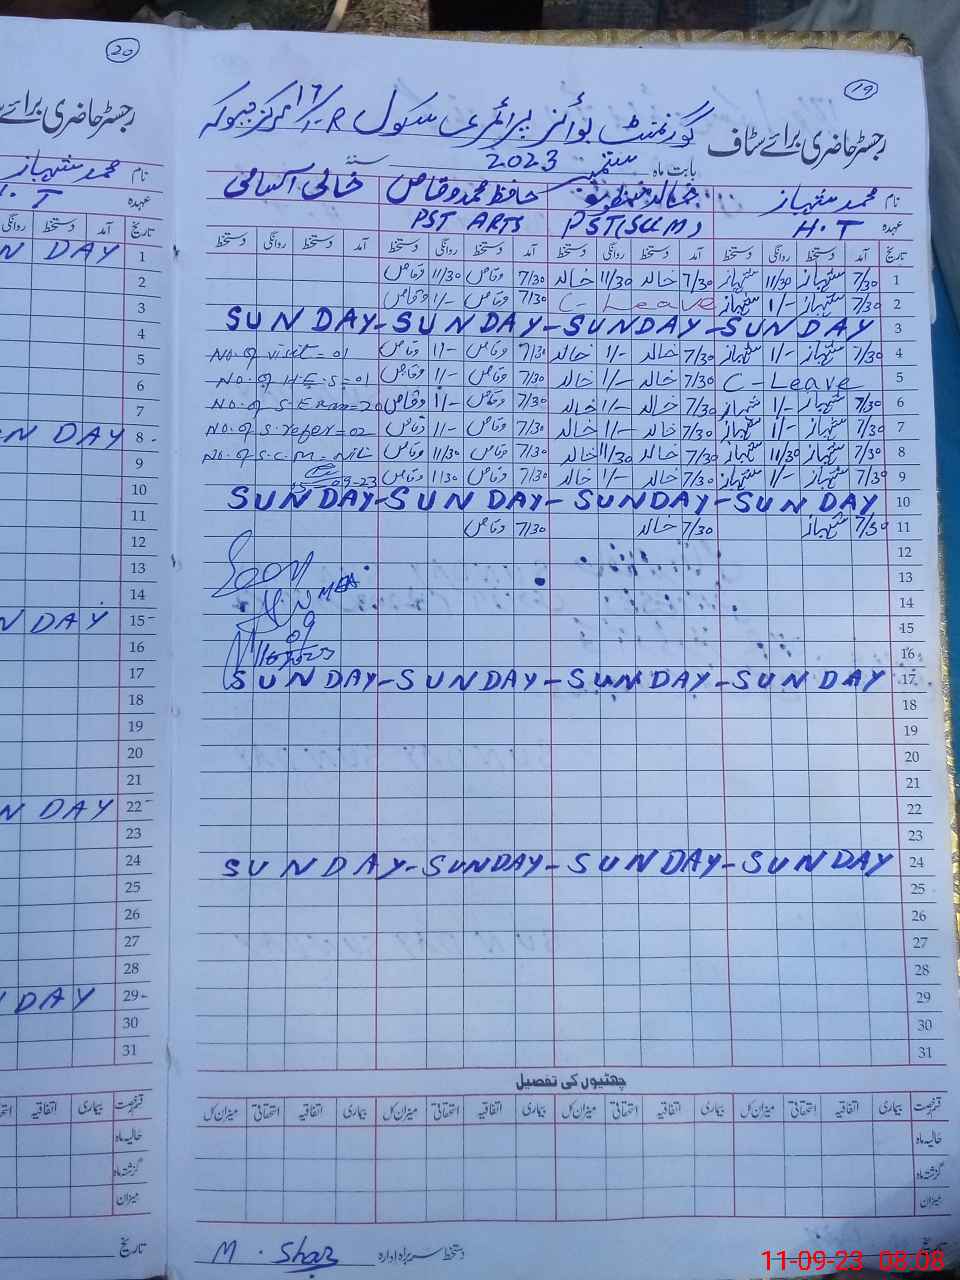 20
رجسٹر حاضری برائے
نام محمد شہباز
عہدہ H.T
تاریخ آمد دستخط روانگی
1 N DAY
2
3
4
5
6
7
8 - N DAY
9
10
11
12
13
14
15 - N DAY
16
17
18
19
20
21
22 - N DAY
23
24
25
26
27
28
29 - DAY
30
31
قسم رخصت بیماری اتفاقیہ
حالیہ ماہ
گزشتہ ماہ
میزان
تاریخ
19
رجسٹر حاضری برائے سٹاف گورنمنٹ بوائز پرائمری سکول 16/1-R مرکز
بابت ماہ ستمبر 2023 سنہ
نام محمد شہباز حافظ محمد وقاص خالی اسامی
عہدہ H.T PST(SCEM) PST ARTS
تاریخ آمد دستخط روانگی دستخط آمد دستخط روانگی دستخط آمد دستخط روانگی دستخط آمد دستخط روانگی دستخط
1 7/30 شہباز 11/30 شہباز 7/30 خالد 11/30 خالد 7/30 وقاص 11/30 وقاص
2 7/30 شہباز 1/- شہباز C-Leave 7/30 وقاص 1/- وقاص
3 SUNDAY-SUNDAY-SUNDAY-SUNDAY
4 7/30 شہباز 1/- شہباز 7/30 خالد 1/- خالد 7/30 وقاص 1/- وقاص No. of visit = 01
5 C-Leave 7/30 خالد 1/- خالد 7/30 وقاص 1/- وقاص No. of H.E.S = 01
6 7/30 شہباز 1/- شہباز 7/30 خالد 1/- خالد 7/30 وقاص 1/- وقاص No. of S. = 20
7 7/30 شہباز 1/- شہباز 7/30 خالد 1/- خالد 7/30 وقاص 1/- وقاص No. of S. refer = 02
8 7/30 شہباز 11/30 شہباز 7/30 خالد 11/30 خالد 7/30 وقاص 11/30 وقاص No. of S.C.M =
9 7/30 شہباز 1/- شہباز 7/30 خالد 1/- خالد 7/30 وقاص 1/30 وقاص 09-23
10 SUNDAY-SUNDAY-SUNDAY-SUNDAY
11 7/30 شہباز 7/30 خالد 7/30 وقاص
12
13 MEA
14
15
16
17 SUNDAY-SUNDAY-SUNDAY-SUNDAY
18
19
20
21
22
23
24 SUNDAY-SUNDAY-SUNDAY-SUNDAY
25
26
27
28
29
30
31
چھٹیوں کی تفصیل
قسم رخصت بیماری اتفاقیہ استحقاقی میزان کل بیماری اتفاقیہ استحقاقی میزان کل بیماری اتفاقیہ استحقاقی میزان کل بیماری اتفاقیہ استحقاقی میزان کل
حالیہ ماہ
گزشتہ ماہ
میزان
تاریخ دستخط سربراہ ادارہ M. Shaz
11-09-23 08:08